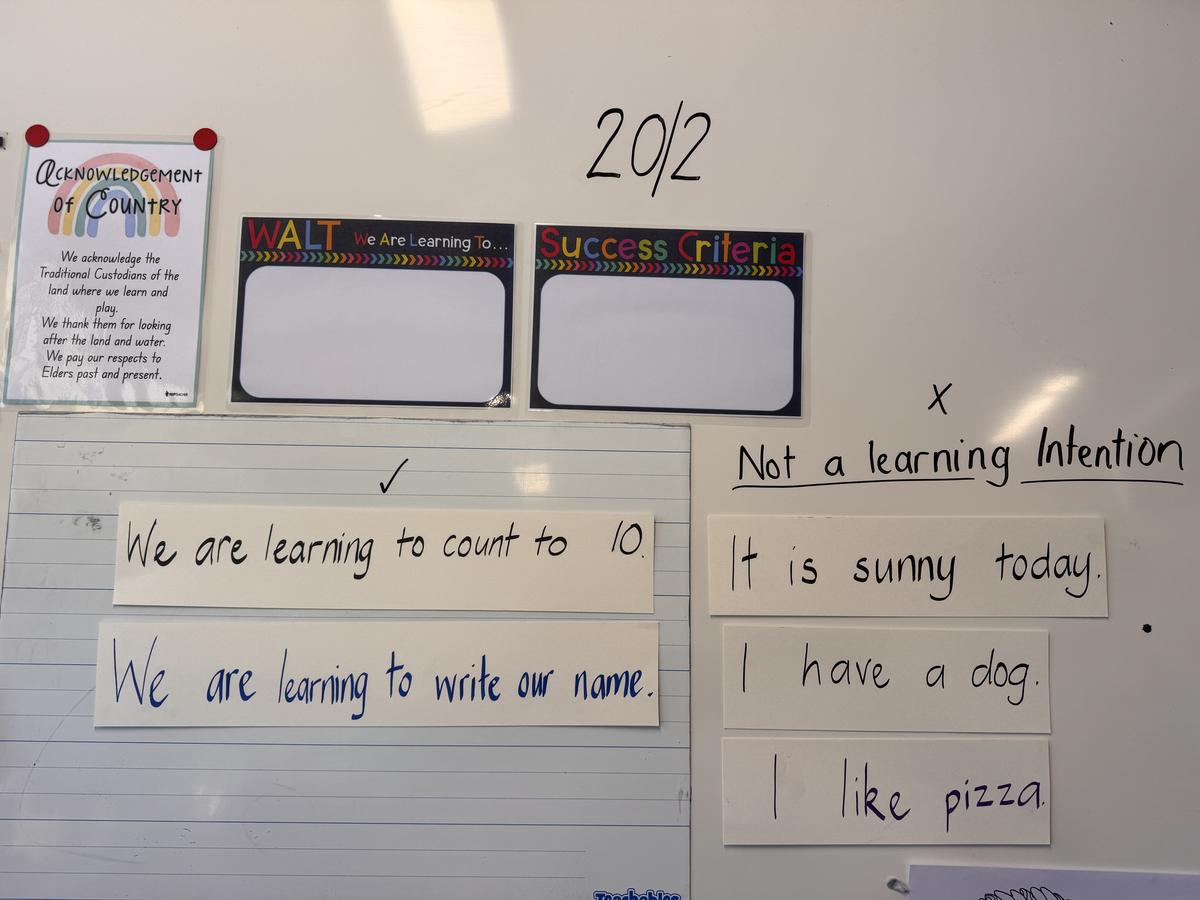 20/2
ACKNOWLEDGEMENT
OF COUNTRY
We acknowledge the
Traditional Custodians of the
land where we learn and
play.
We thank them for looking
after the land and water.
We pay our respects to
Elders past and present.
WALT We Are Learning To...
Success Criteria
✓
We are learning to count to 10.
We are learning to write our name.
X
Not a learning Intention
It is sunny today.
I have a dog.
I like pizza.
Teachables